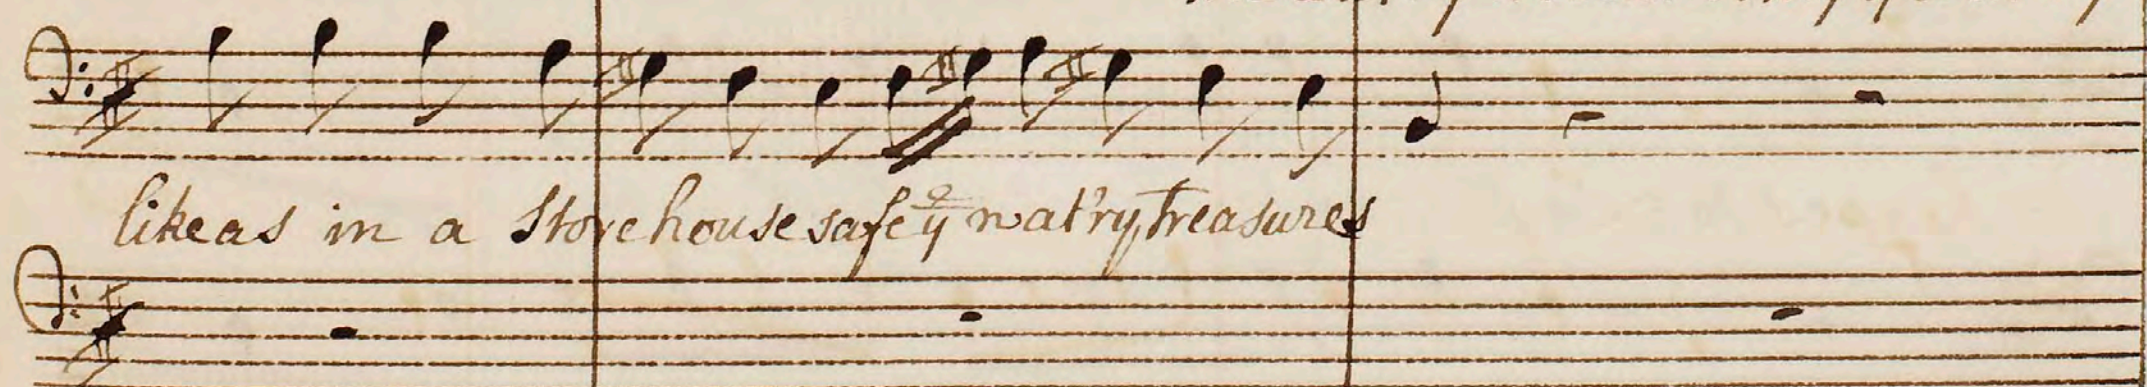 like as in a Store house safe yͤ wat'ry Treasures